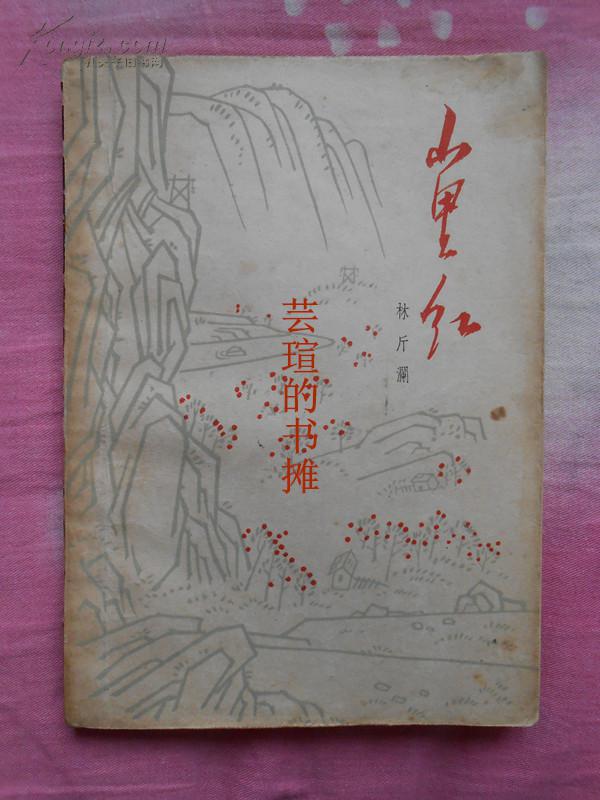 Kongfz.com
孔夫子旧书网
山里红
林斤澜
芸瑄的书摊